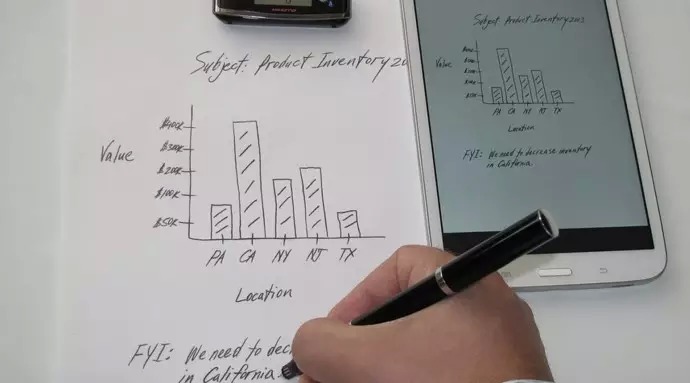 Subject: Product Inventory 20
$400K
$300K
$200K
$100K
$50K
Value
PA CA NY NJ TX
Location
FYI: We need to dec
in California.
Subject: Product Inventory
Value
PA CA NY NJ TX
Location
FYI: We need to decrease inventory
in California.